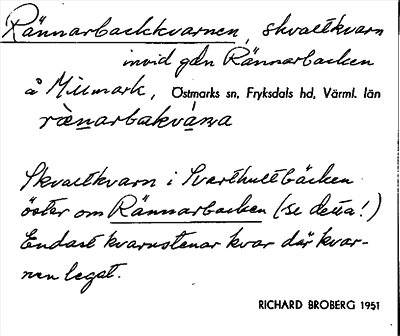 Rännarbackkvarnen, skvaltkvarn
invid gdn Rännarbacken
å Millmark, Östmarks sn, Fryksdals hd, Värml. län
ræ̀narbakvána
Skvaltkvarn i Svarthultbäcken
öster om Rännarbacken (se detta!)
Endast kvarnstenar kvar där kvar-
nen legat.
RICHARD BROBERG 1951